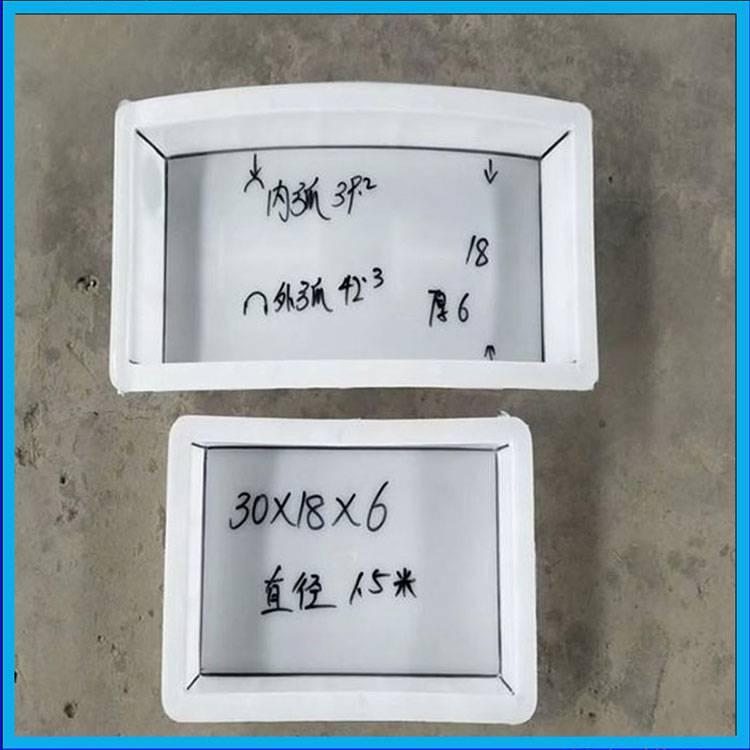 内弧 39.2
18
外弧 42.3
厚6
30X18X6
直径 1.5米